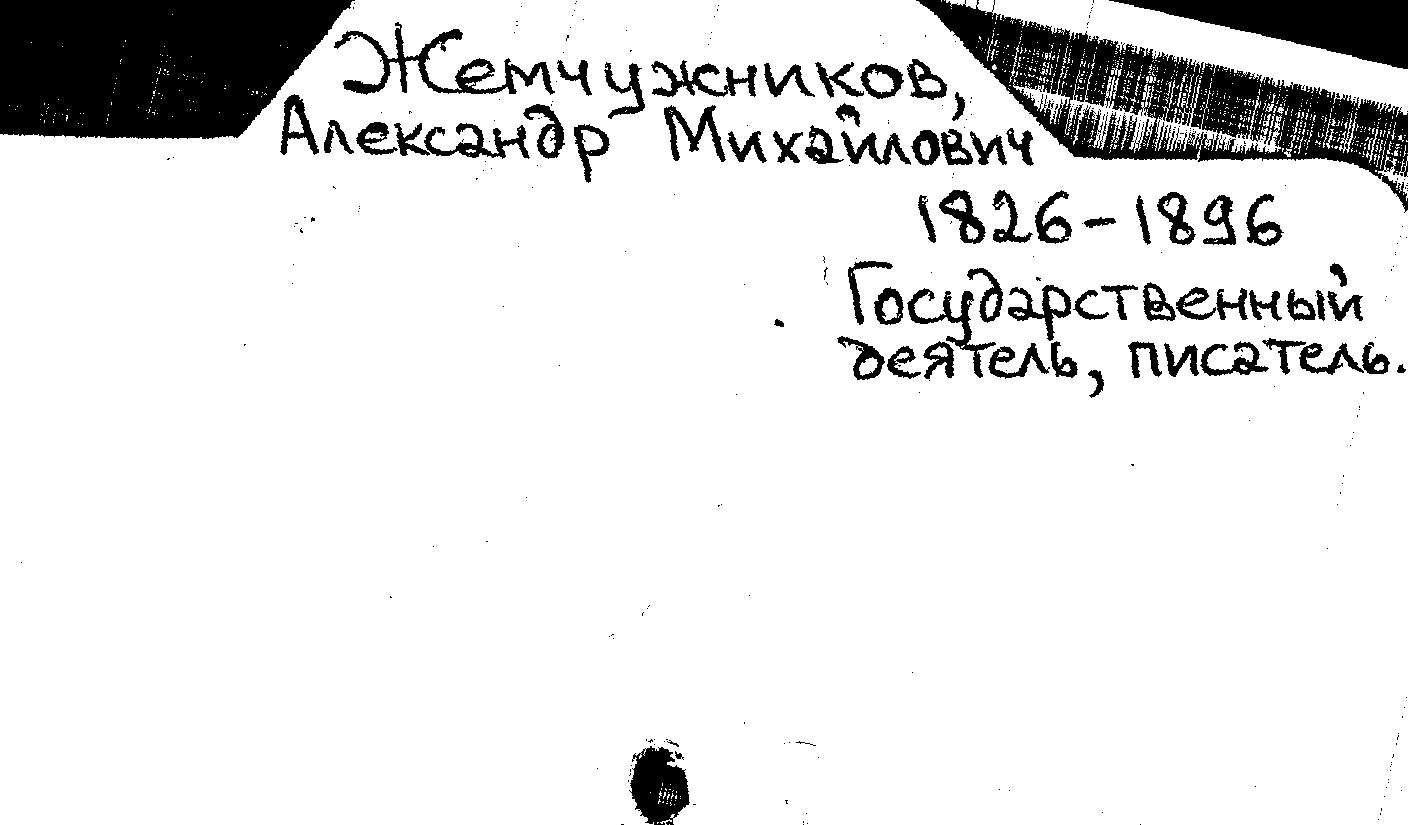 Жемчужников,
Александр Михайлович
1826-1896
Государственный
деятель, писатель.